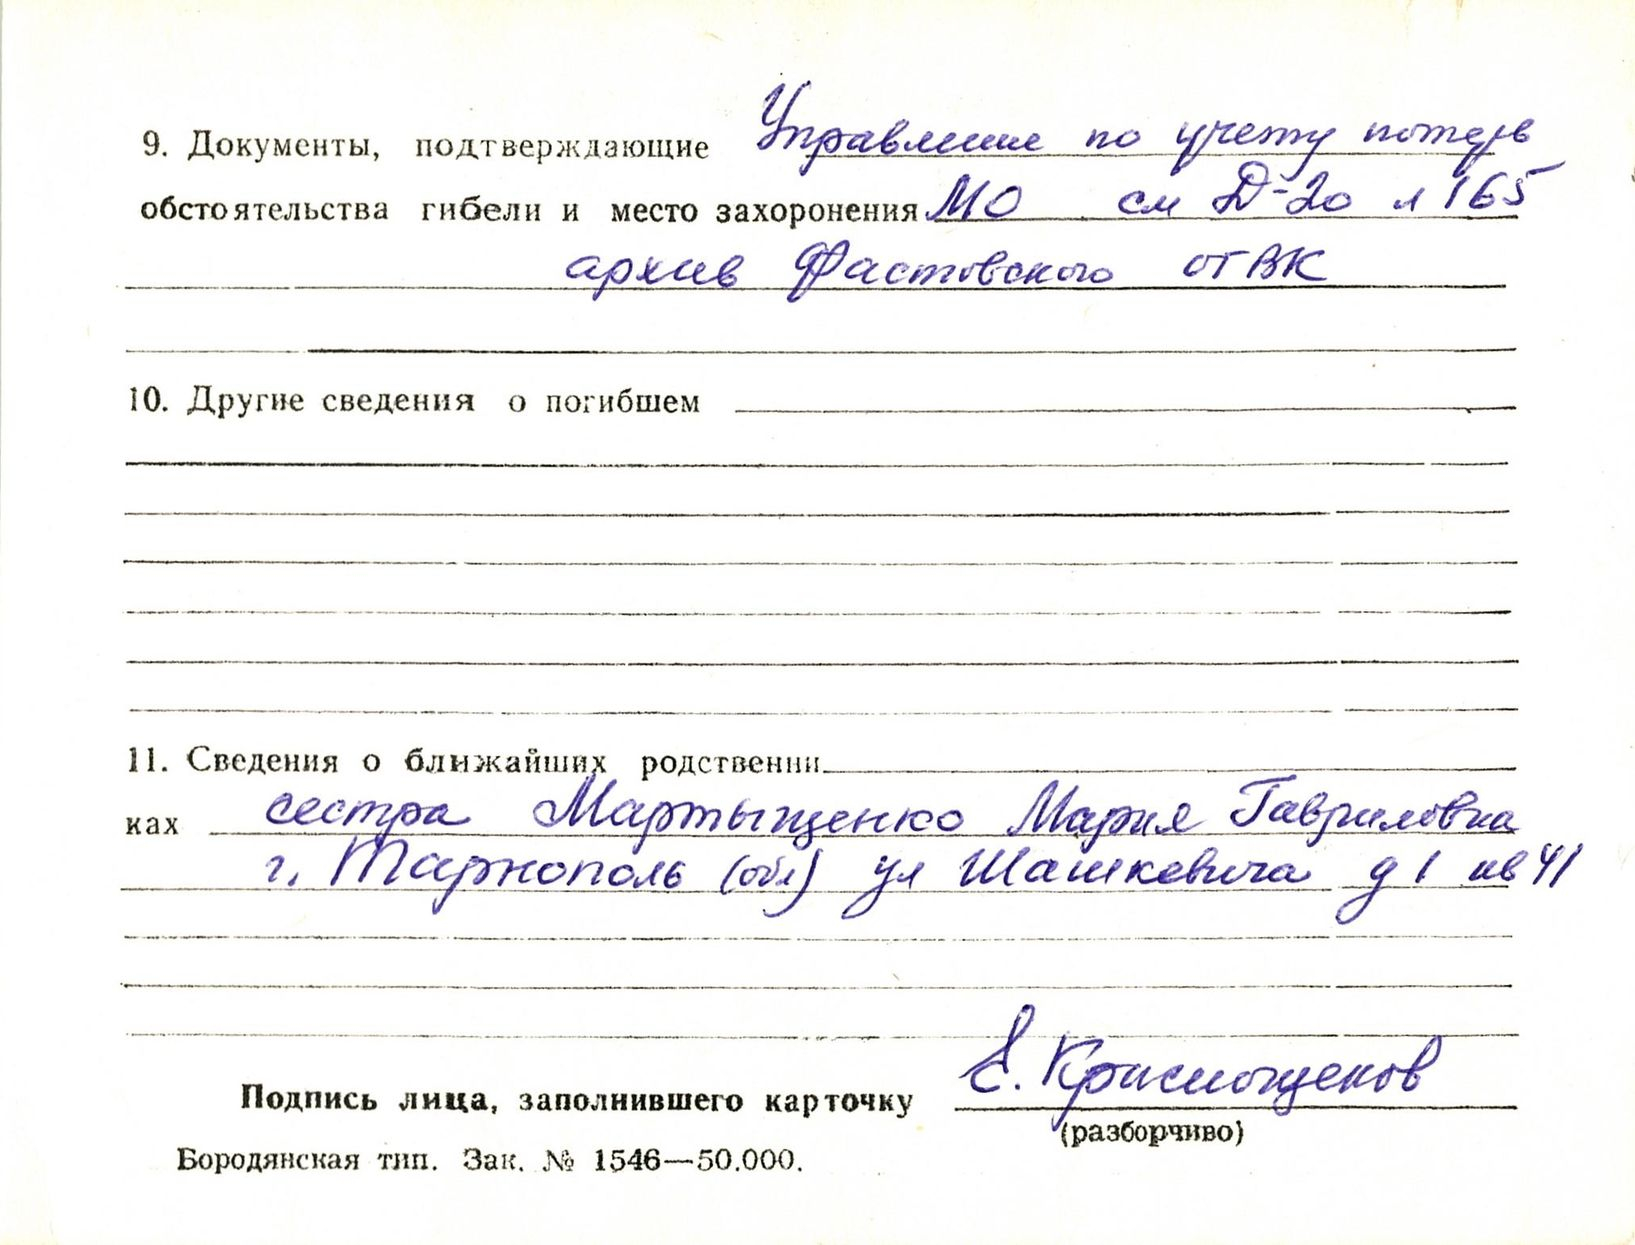 9. Документы, подтверждающие Управление по учету потерь
обстоятельства гибели и место захоронения МО см Д-20 л 165
архив Фастовского ОГВК
10. Другие сведения о погибшем
11. Сведения о ближайших родственни
ках сестра Мартыщенко Мария Гавриловна
г. Тарнополь (обл) ул Шашкевича д 1 кв 41
Подпись лица, заполнившего карточку Е. Краснощеков
(разборчиво)
Бородянская тип. Зак. № 1546—50.000.